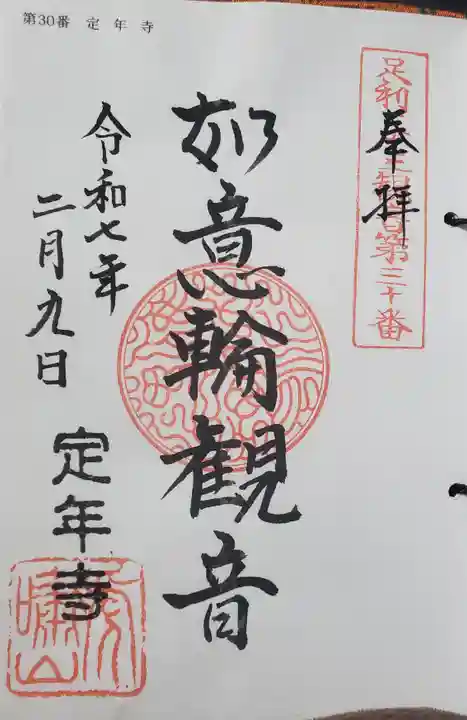 第30番 定年寺
奉拝
足利
観音第三十番
如意輪觀音
令和七年
二月九日
定年寺